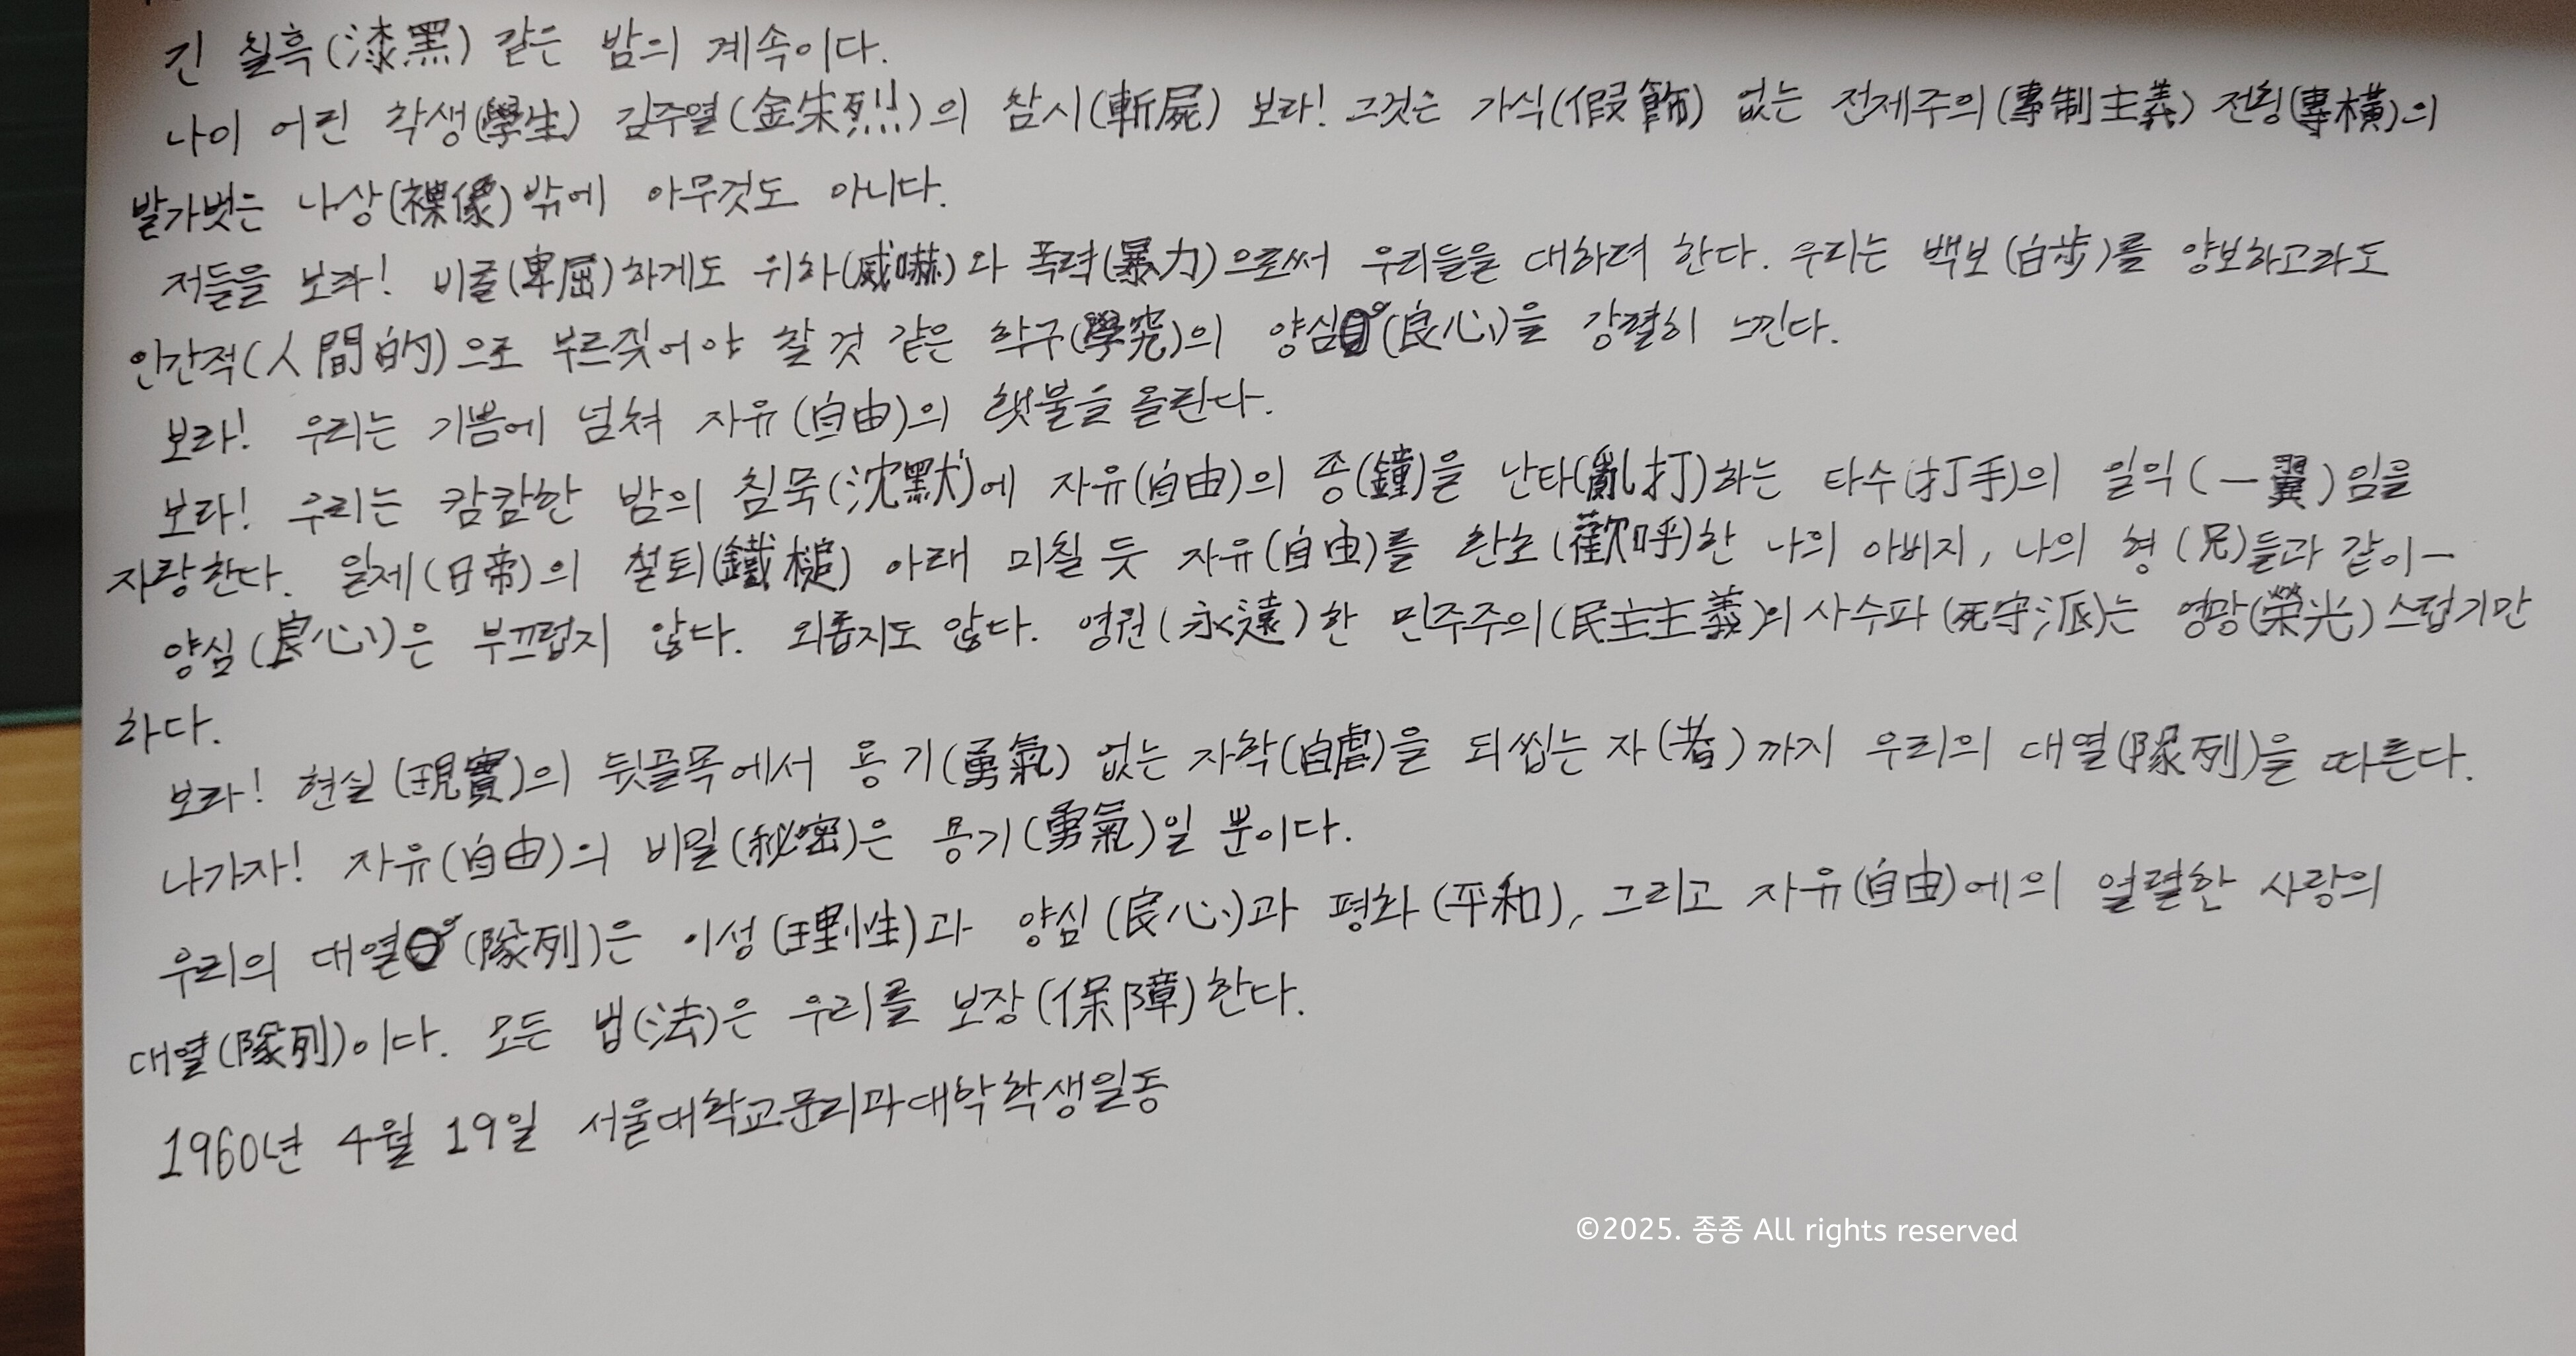 긴 칠흑(漆黑) 같은 밤의 계속이다.
나이 어린 학생(學生) 김주열(金朱烈)의 참시(斬屍) 보라! 그것은 가식(假飾) 없는 전제주의(專制主義) 전횡(專橫)의
발가벗은 나상(裸像) 밖에 아무것도 아니다.
저들을 보라! 비굴(卑屈)하게도 위하(威嚇)와 폭력(暴力)으로써 우리들을 대하려 한다. 우리는 백보(白步)를 양보하고라도
인간적(人間的)으로 부르짖어야 할 것 같은 학구(學究)의 양심(良心)을 강렬히 느낀다.
보라! 우리는 기쁨에 넘쳐 자유(自由)의 횃불을 올린다.
보라! 우리는 캄캄한 밤의 침묵(沈默)에 자유(自由)의 종(鐘)을 난타(亂打)하는 타수(打手)의 일익(一翼)임을
자랑한다. 일제(日帝)의 철퇴(鐵槌) 아래 미칠 듯 자유(自由)를 환호(歡呼)한 나의 아버지, 나의 형(兄)들과 같이一
양심(良心)은 부끄럽지 않다. 외롭지도 않다. 영원(永遠)한 민주주의(民主主義)의 사수파(死守派)는 영광(榮光)스럽기만
하다.
보라! 현실(現實)의 뒷골목에서 용기(勇氣) 없는 자학(自虐)을 되씹는 자(者)까지 우리의 대열(隊列)을 따른다.
나가자! 자유(自由)의 비밀(秘密)은 용기(勇氣)일 뿐이다.
우리의 대열(隊列)은 이성(理性)과 양심(良心)과 평화(平和), 그리고 자유(自由)에의 열렬한 사랑의
대열(隊列)이다. 모든 법(法)은 우리를 보장(保障)한다.
1960년 4월 19일 서울대학교문리과대학학생일동
©2025. 종종 All rights reserved